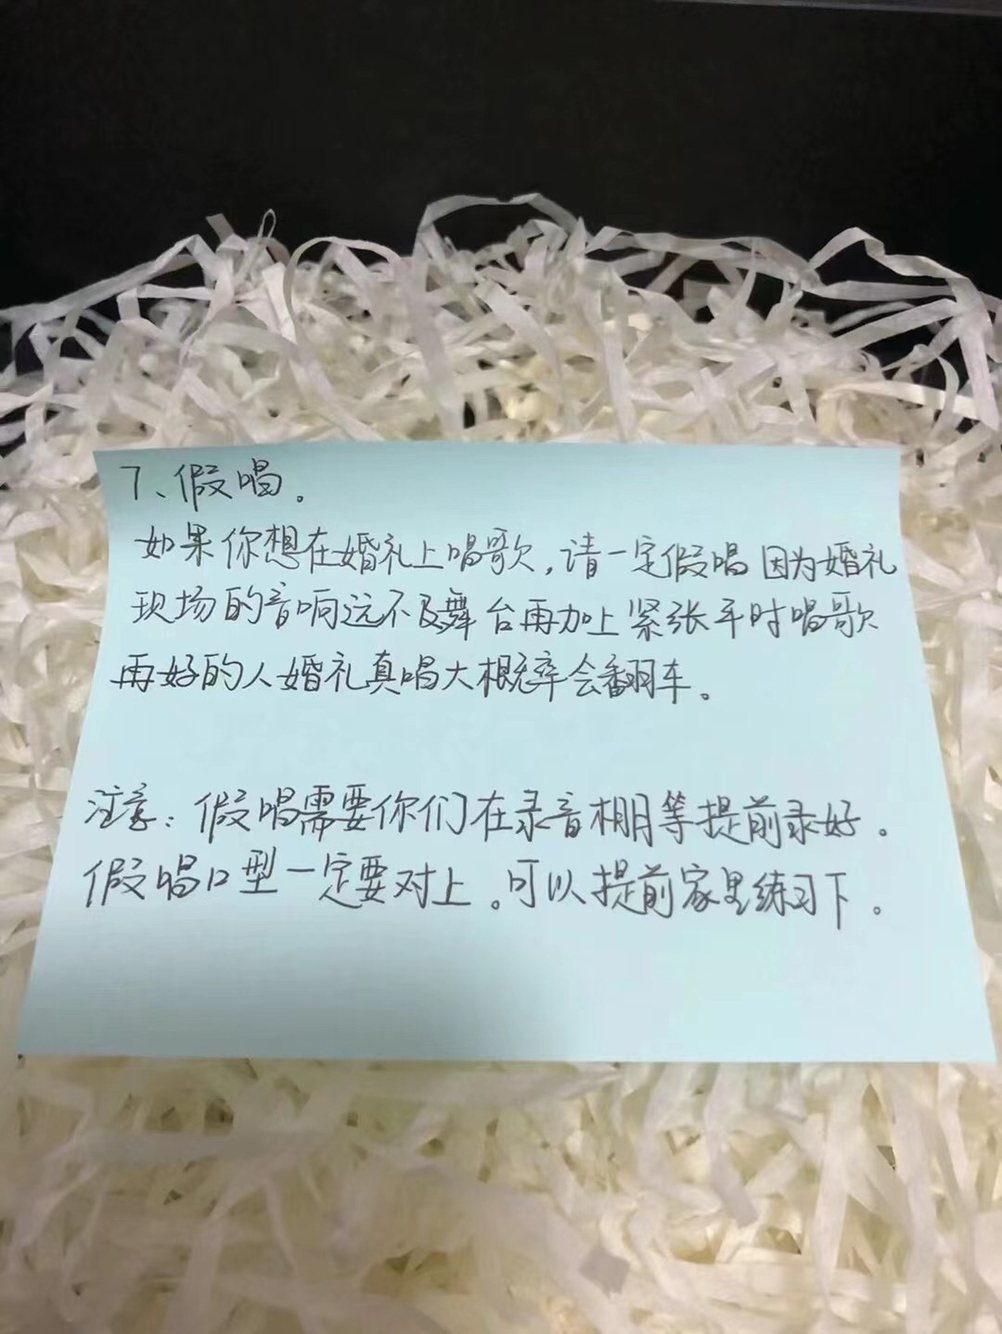 7、假唱。
如果你想在婚礼上唱歌,请一定假唱 因为婚礼
现场的音响远不及舞台再加上紧张平时唱歌
再好的人婚礼真唱大概率会翻车。
注意:假唱需要你们在录音棚等提前录好。
假唱口型一定要对上。可以提前家里练习下。